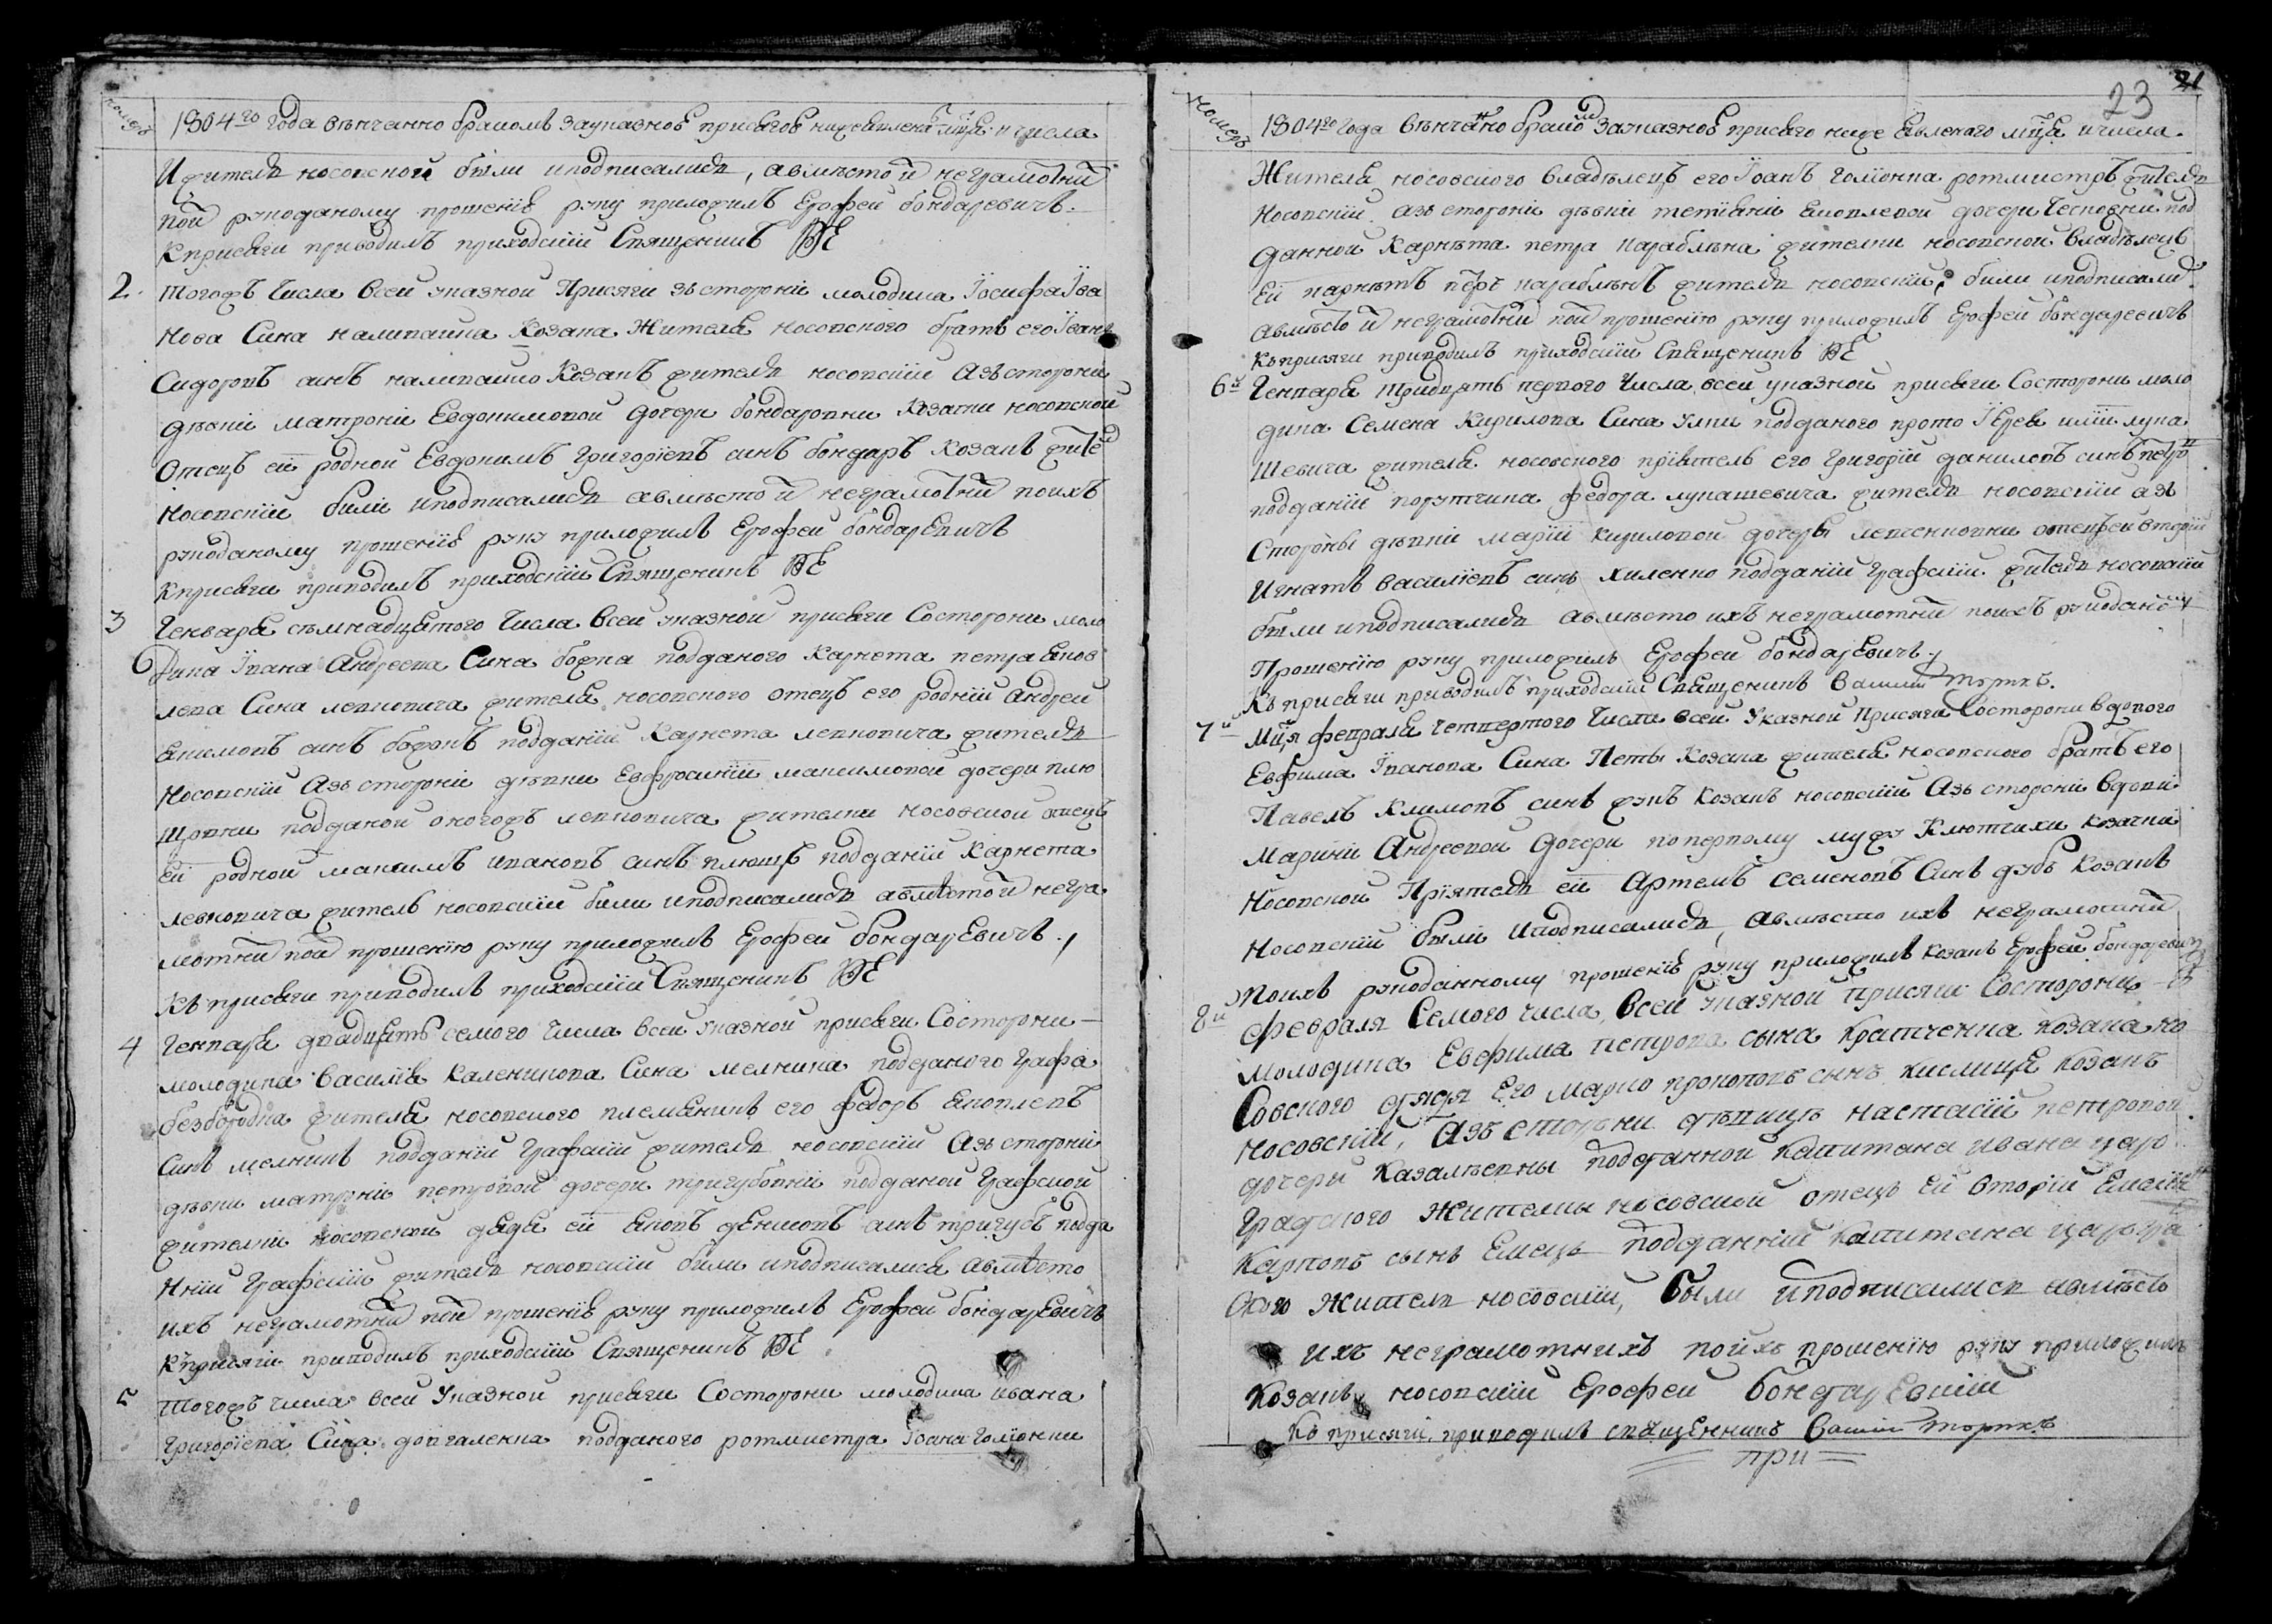 номеръ
1804го Года вѣнчанно бракомъ зауказное присягое ниже явленаго мца и числа
И жителѣ носовского були иподписалися, авмѣсто й неграмотнй
пой рукоданому прошенію руку приложилъ Ерофей бондаревичъ
кприсяги приводилъ приходскій Священикъ ВЕ
2. Тогожъ числа всей указной Присяги зъсторонѣ молодика Іосифа Ива
нова Сина каливайка Козака Жителя носовского братъ его Іванъ
Сидоровъ синъ каливайко Козакъ жителъ носовскій Азъстороны
дѣвкѣ матроны Евдокимовой дочери бондаровни козачки носовской
Отецъ ей родной Евдокимъ Григоріевъ синъ бондаръ Козакъ жител
носовскій були иподписалися авмѣсто й неграмотнй поихъ
рукоданому прошенію руку приложилъ Ерофей бондаревичъ
кприсяги приводилъ приходскій Священикъ ВЕ
3 Генваря сѣмнадцятого числа всей указной присяги Состороны моло
дика Івана Андреева Сина божка подданого карнета петра Яков
лева Сина левковича жителя носовского отецъ его родній Андрей
Якимовъ синъ божокъ подданій карнета левковича жителъ
носовскій Азъ стороны дѣвки Евфросиніи максимовой дочери плю
щовни подданой оногожъ левковича жителки носовской отецъ
ей родной максимъ ивановъ синъ плющъ подданій карнета
левковича житель носовскій були иподписалися авмѣсто й негра
мотнй пой прошенію руку приложилъ Ерофей бондаревичъ
Къ присяги приводилъ приходскій Священикъ ВЕ
4 Генваря двадцять семого числа всей указной присяги Состороны
молодика василія каленикова Сина мелника подданого Графа
безбородка жителя носовского племяникъ его федоръ Яковлевъ
синъ мелникъ подданій Графскій жителъ носовскій Азъ сторонѣ
дѣвки матроны петровой дочери тригубовны подданой Графской
жителкѣ носовской дядя ей Яковъ денисовъ синъ тригубъ подда
ній Графскій жителъ носовскій були иподписалися Авмѣсто
ихъ неграмотнй пой прошенію руку приложилъ Ерофей бондаревичъ
кприсяги приводилъ приходскій Священикъ ВЕ
5 Тогожъ числа всей указной присяги Состороны молодика ивана
Григоріева Сина довгаленка подданого ротмистра Іоана Голіонки
21
23
номеръ
1804го Года вѣнчанно бракомъ зауказное присяго ниже явленаго мца и числа
Жителя носовского владѣлецъ его Іоанъ Голіонка ротмистръ жителъ
носовскій азъ стороны дѣвки тетіяны Яковлевой дочери под
данной Карнѣта петра жителки носовской владѣлецъ
ей карнѣтъ петръ жителъ носовскій були иподписали
авмѣсто й неграмотнй пой прошенію руку приложилъ Ерофей бондаревичъ
къ присяги приводилъ приходскій Священикъ ВЕ
6й Генваря Тридцять первого числа всей указной присяги Состороны моло
дика Семена Кирилова Сина подданого прото Іерея лука
шевича жителя носовского пріятель его Григорій даниловъ синъ
подданій порутчика федора лукашевича жителъ носовскій азъ
Стороны дѣвкѣ маріи Кириловой дочеры отецъ ей вторій
Игнатъ василіевъ синъ хиленко подданій Графскій жителъ носовскій
були иподписалися авмѣсто ихъ неграмотнй поихъ рукоданому
Прошенію руку приложилъ Ерофей бондаревичъ
Къ присяги приводилъ приходскій Священикъ
7й Мця февраля четвертого числа всей Указной Присяги Состороны вдового
Евфима Іванова Сина Козака жителя носовского братъ его
Павелъ Климовъ синъ жукъ Козакъ носовскій Азъ стороны вдови
Марины Андреевой дочери попервому мужу козачки
Носовской Пріятелъ ей Артемъ Семеновъ Синъ дубъ Козакъ
Носовскій були иподписалися, Авмѣсто ихъ неграмотнй
Поихъ рукоданному прошенію руку приложилъ козакъ Ерофей бондаревичъ
8й февраля Семого числа, Всей указной присяги Состороны
молодика Евфима петрова сына Кравченка козака но
Совского дядя Его марко прокоповъ сынъ кислиця козакъ
носовскій, Азъ стороны дѣвицы настасіи петровой
дочери подданной Капитана ивана царо
градского жителки носовской отецъ ей вторій
Карповъ сынъ Емецъ подданній капитана царогра
ского жителъ носовскій, були иподписалися авмѣсто
ихъ неграмотнихъ поихъ прошенію руку приложилъ
козакъ носовскій Ерофей бондаревскій
Къ присяги приводилъ священникъ
при